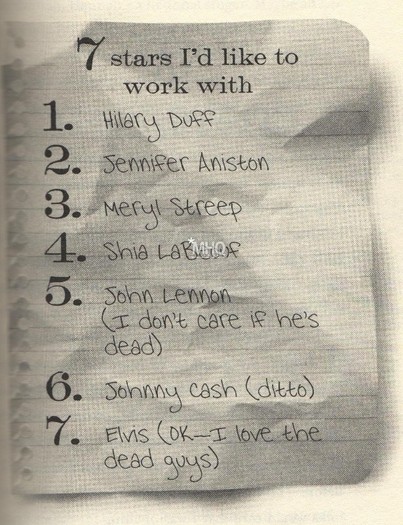 7 stars I'd like to
work with
1. Hilary Duff
2. Jennifer Aniston
3. Meryl Streep
4. Shia LaBeouf
MHQ
5. John Lennon
(I don't care if he's
dead)
6. Johnny Cash (ditto)
7. Elvis (OK—I love the
dead guys)